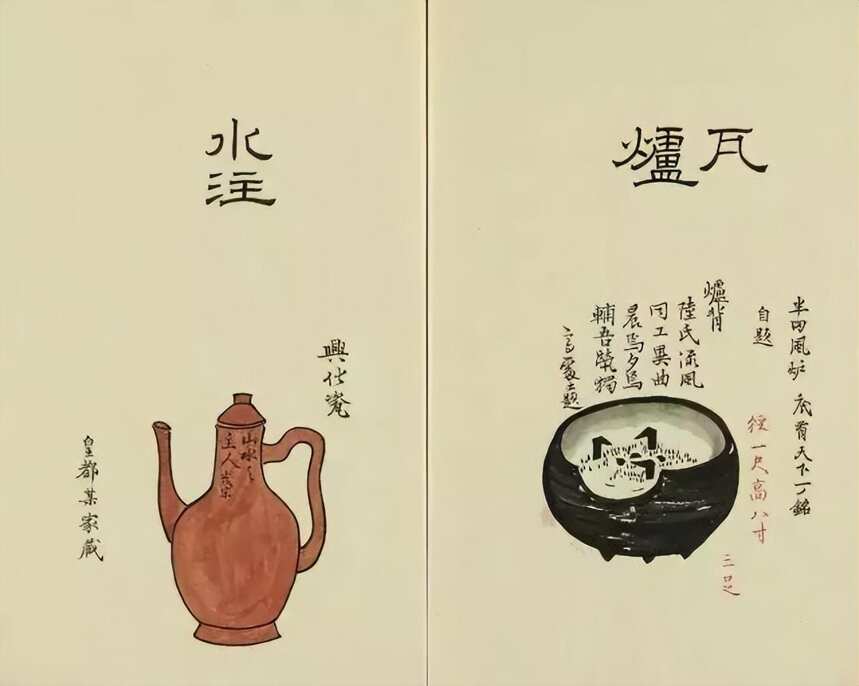 瓦爐
半田風炉 底有天下一銘
自題
徑一尺高八寸
三足
爐背
陸氏流風
同工異曲
晨烏夕烏
輔吾煢獨
題
水注
興化瓷
山水
主人
皇都某家蔵